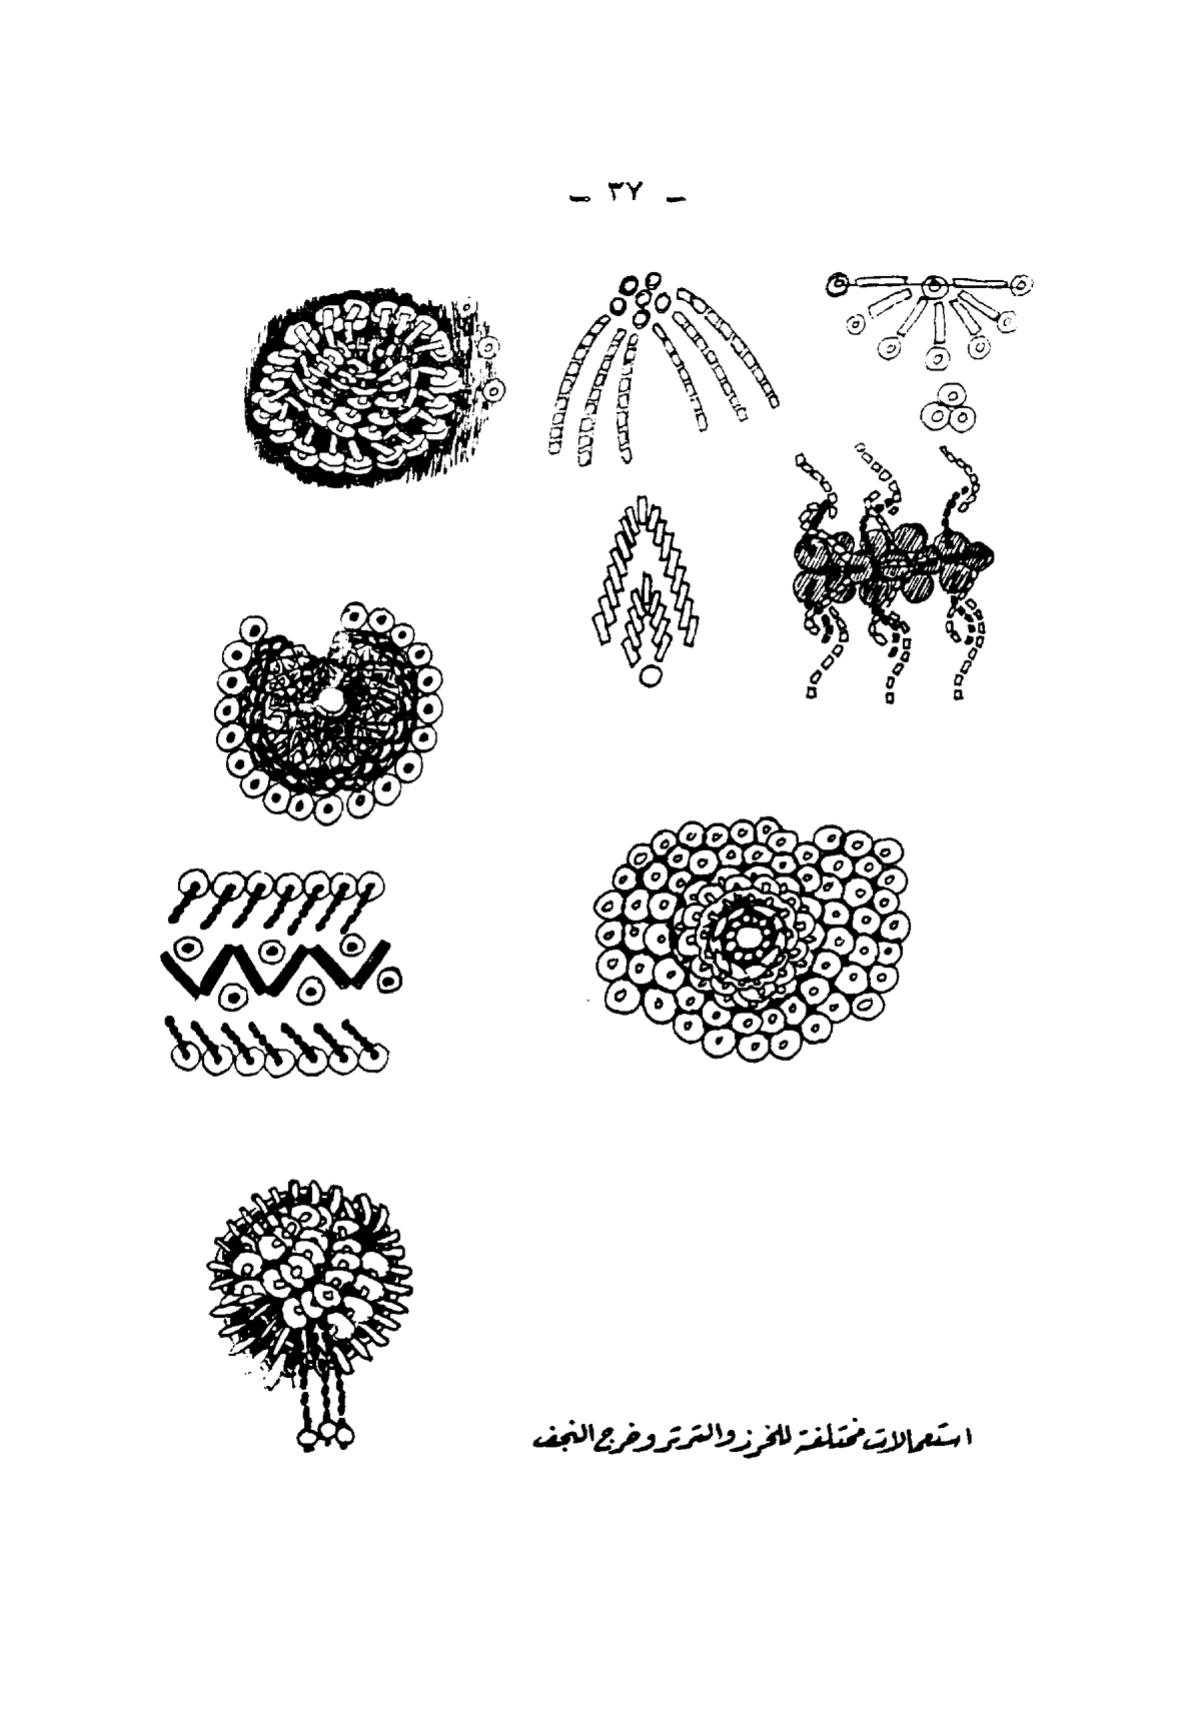 - ٣٧ -
استعمالات مختلفة للخرز والترتر وخرج النجف